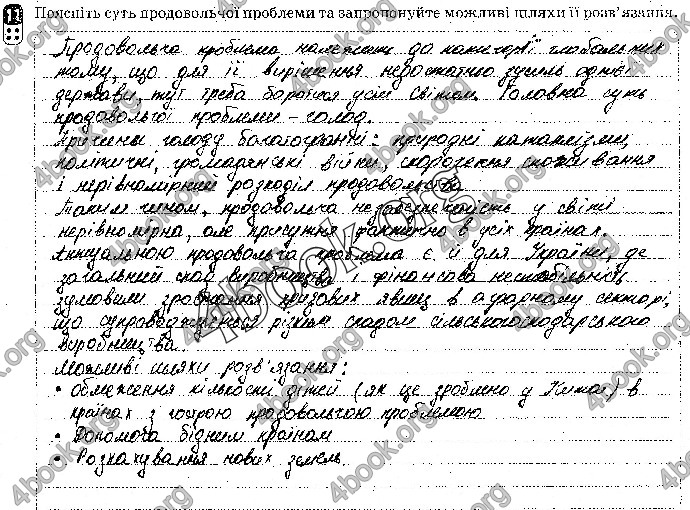 13 Поясніть суть продовольчої проблеми та запропонуйте можливі шляхи її розв'язання.
Продовольча проблема належить до категорії глобальних
тому, що для її вирішення недостатньо зусиль однієї
держави, тут треба боротися усім світом. Головна суть
продовольчої проблеми – голод.
Причини голоду багатогранні: природні катаклізми,
політичні, громадянські війни, скорочення споживання
і нерівномірний розподіл продовольства
Таким чином, продовольча незабезпеченість у світі
нерівномірна, але присутня фактично в усіх країнах.
Актуальною продовольча проблема є й для України, де
загальний спад виробництва і фінансова нестабільність
зумовили зростання кризових явищ в аграрному секторі,
що супроводжується різким спадом сільськогосподарського
виробництва.
Можливі шляхи розв'язання:
• обмеження кількості дітей (як це зроблено у Китаї) в
країнах з гострою продовольчою проблемою
• Допомога бідним країнам
• Розпахування нових земель.
4book.org